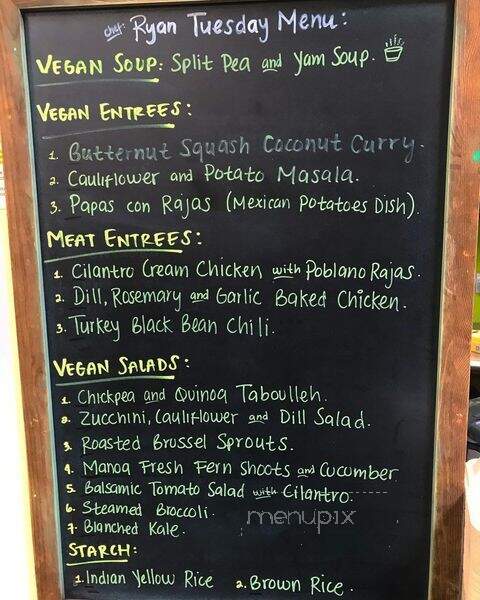 chef: Ryan Tuesday Menu:
VEGAN SOUP: Split Pea and Yam Soup.
VEGAN ENTREES:
1. Butternut Squash Coconut Curry.
2. Cauliflower and Potato Masala.
3. Papas con Rajas (Mexican Potatoes Dish).
MEAT ENTREES:
1. Cilantro Cream Chicken with Poblano Rajas.
2. Dill, Rosemary and Garlic Baked Chicken.
3. Turkey Black Bean Chili.
VEGAN SALADS:
1. Chickpea and Quinoa Taboulleh.
2. Zucchini, Cauliflower and Dill Salad.
3. Roasted Brussel Sprouts.
4. Manoa Fresh Fern Shoots and Cucumber
5. Balsamic Tomato Salad with Cilantro.
6. Steamed Broccoli.
7. Blanched Kale.
menupix
STARCH:
1. Indian Yellow Rice 2. Brown Rice.